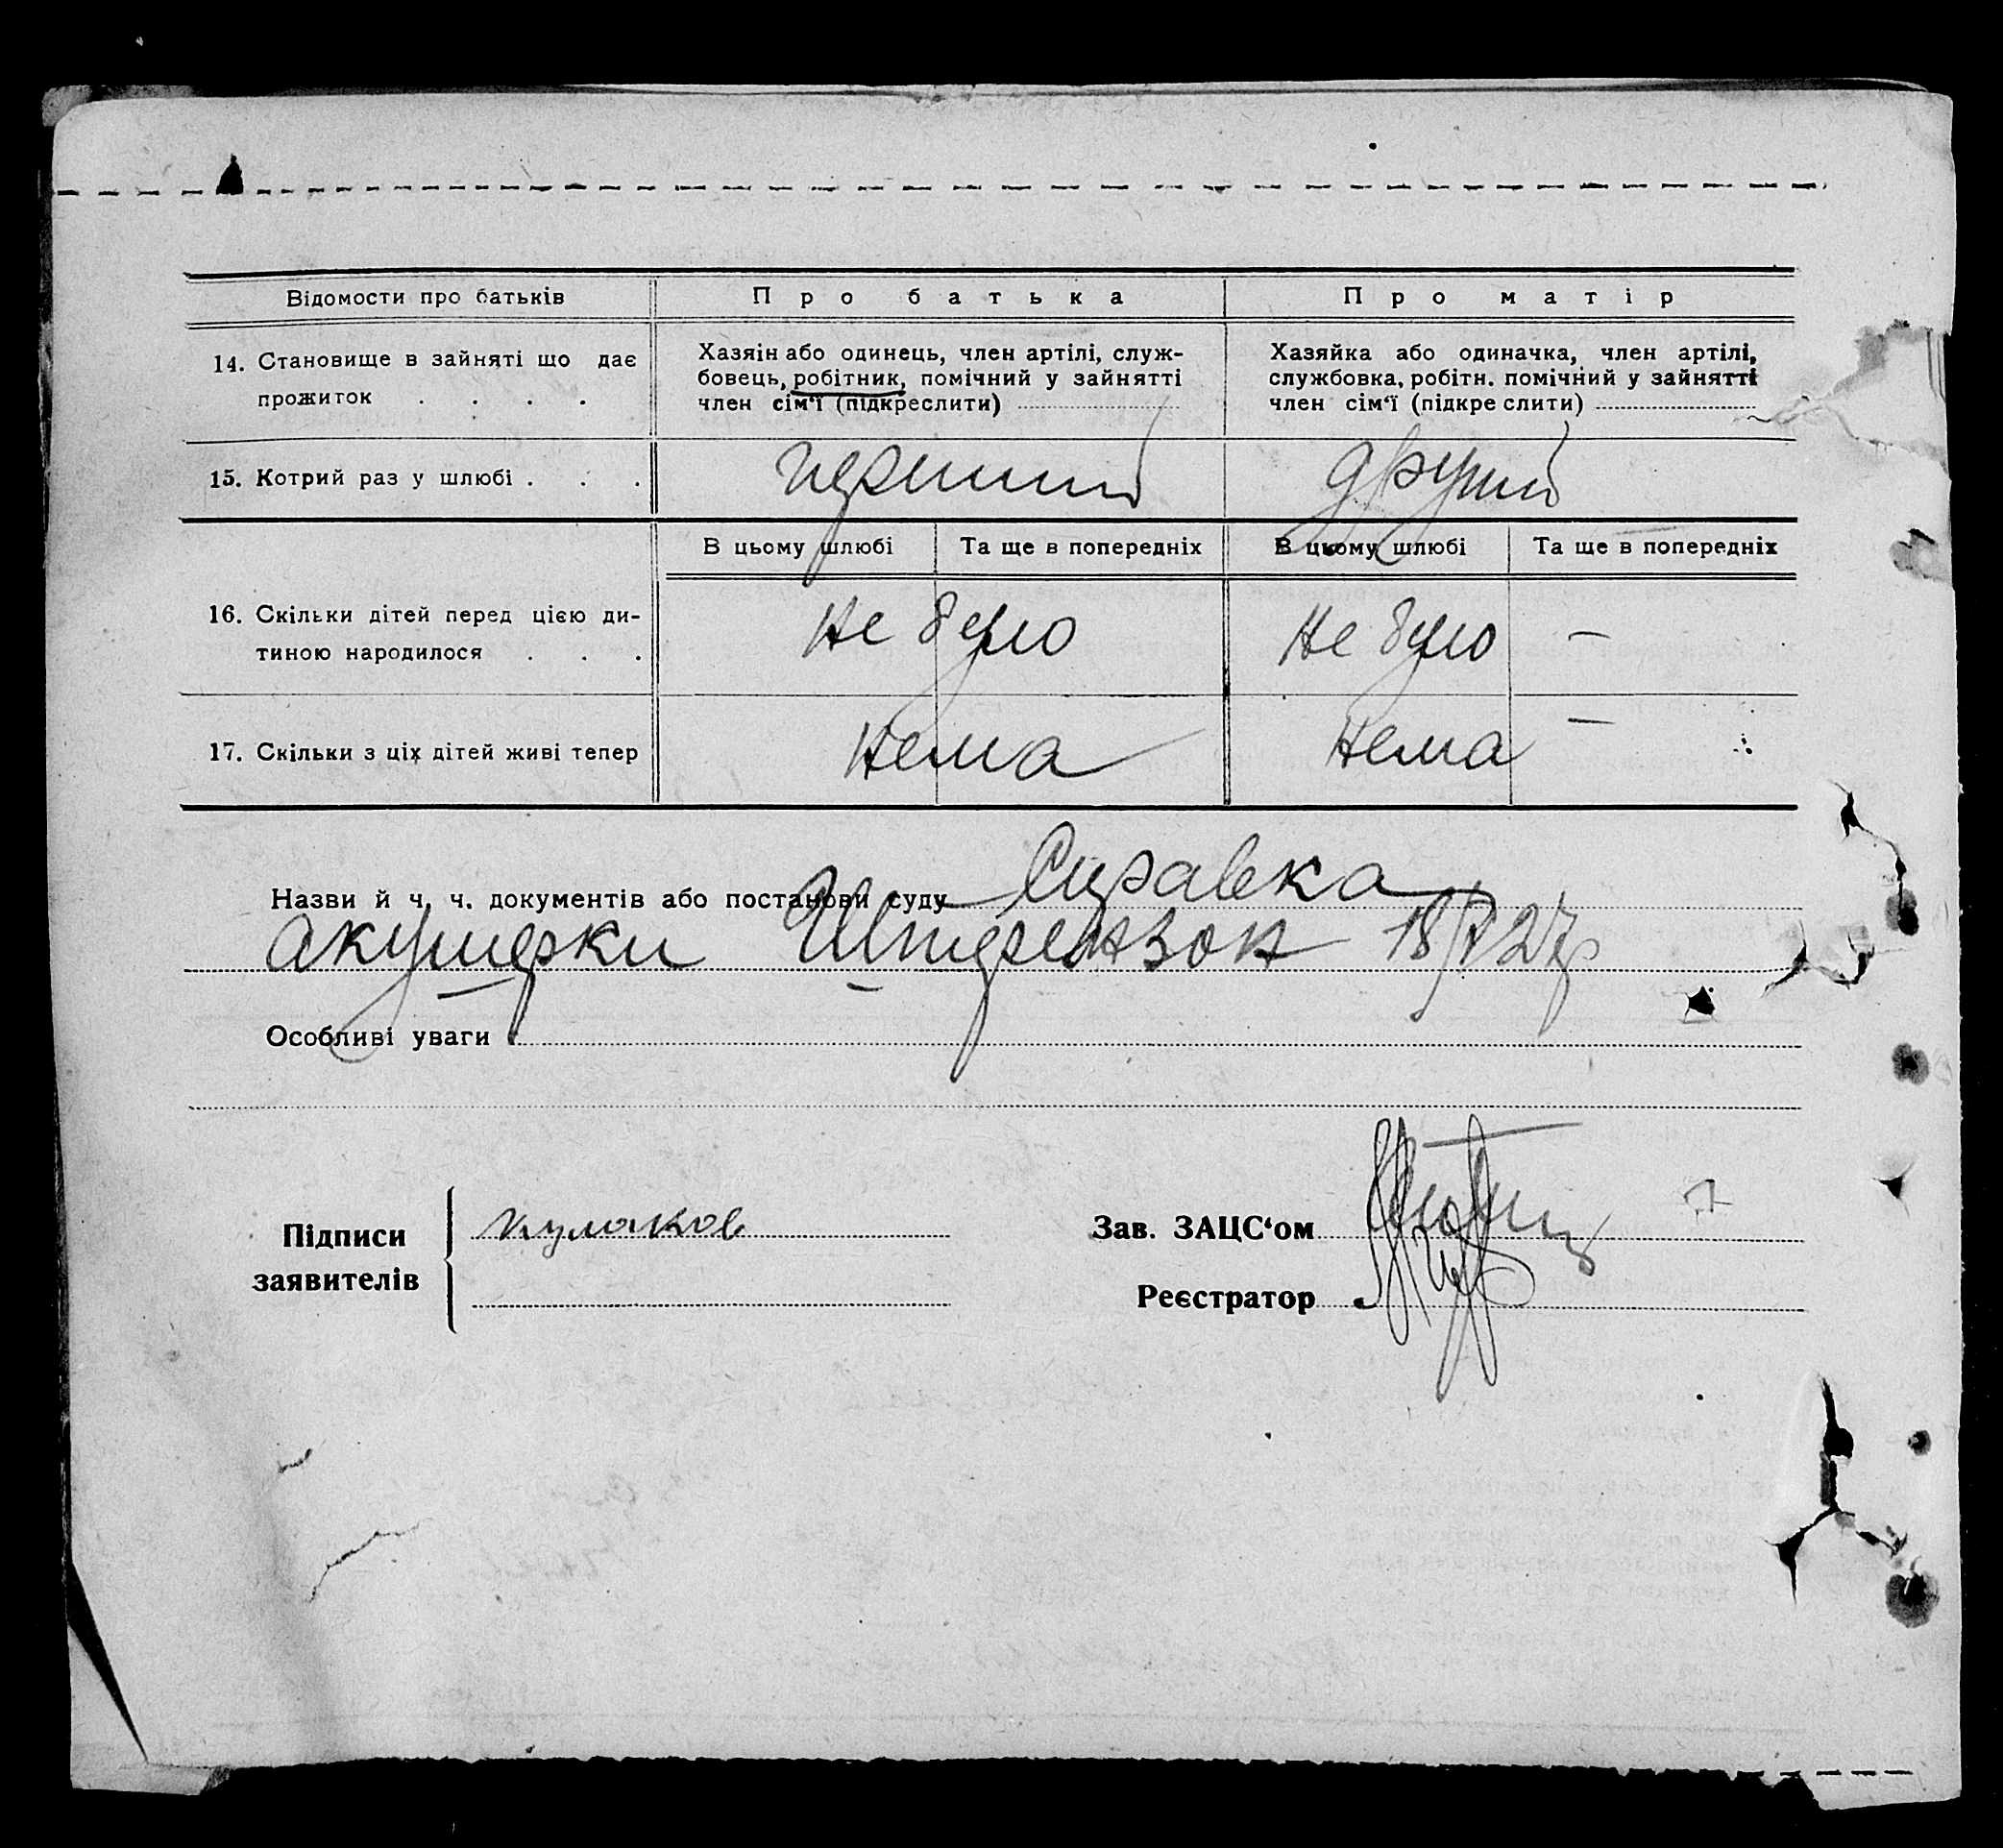 Відомости про батьків Про батька Про матір
14. Становище в зайняті що дає
прожиток . . . .
Хазяін або одинець, член артілі, служ-
бовець, робітник, помічний у зайнятті
член сім‘ї (підкреслити)
Хазяйка або одиначка, член артілі,
службовка, робітн. помічний у зайнятті
член сім‘ї (підкре слити)
15. Котрий раз у шлюбі . . . перший другий
В цьому шлюбі Та ще в попередніх В цьому шлюбі Та ще в попередніх
16. Скільки дітей перед цією ди-
тиною народилося . . .
Не було Не було —
17. Скільки з ціх дітей живі тепер Нема Нема —
Назви й ч. ч. документів або постанови суду Справка
акушерки 18/ 27р
Особливі уваги
Підписи
заявителів
кулаков
Зав. ЗАЦС‘ом
Реєстратор